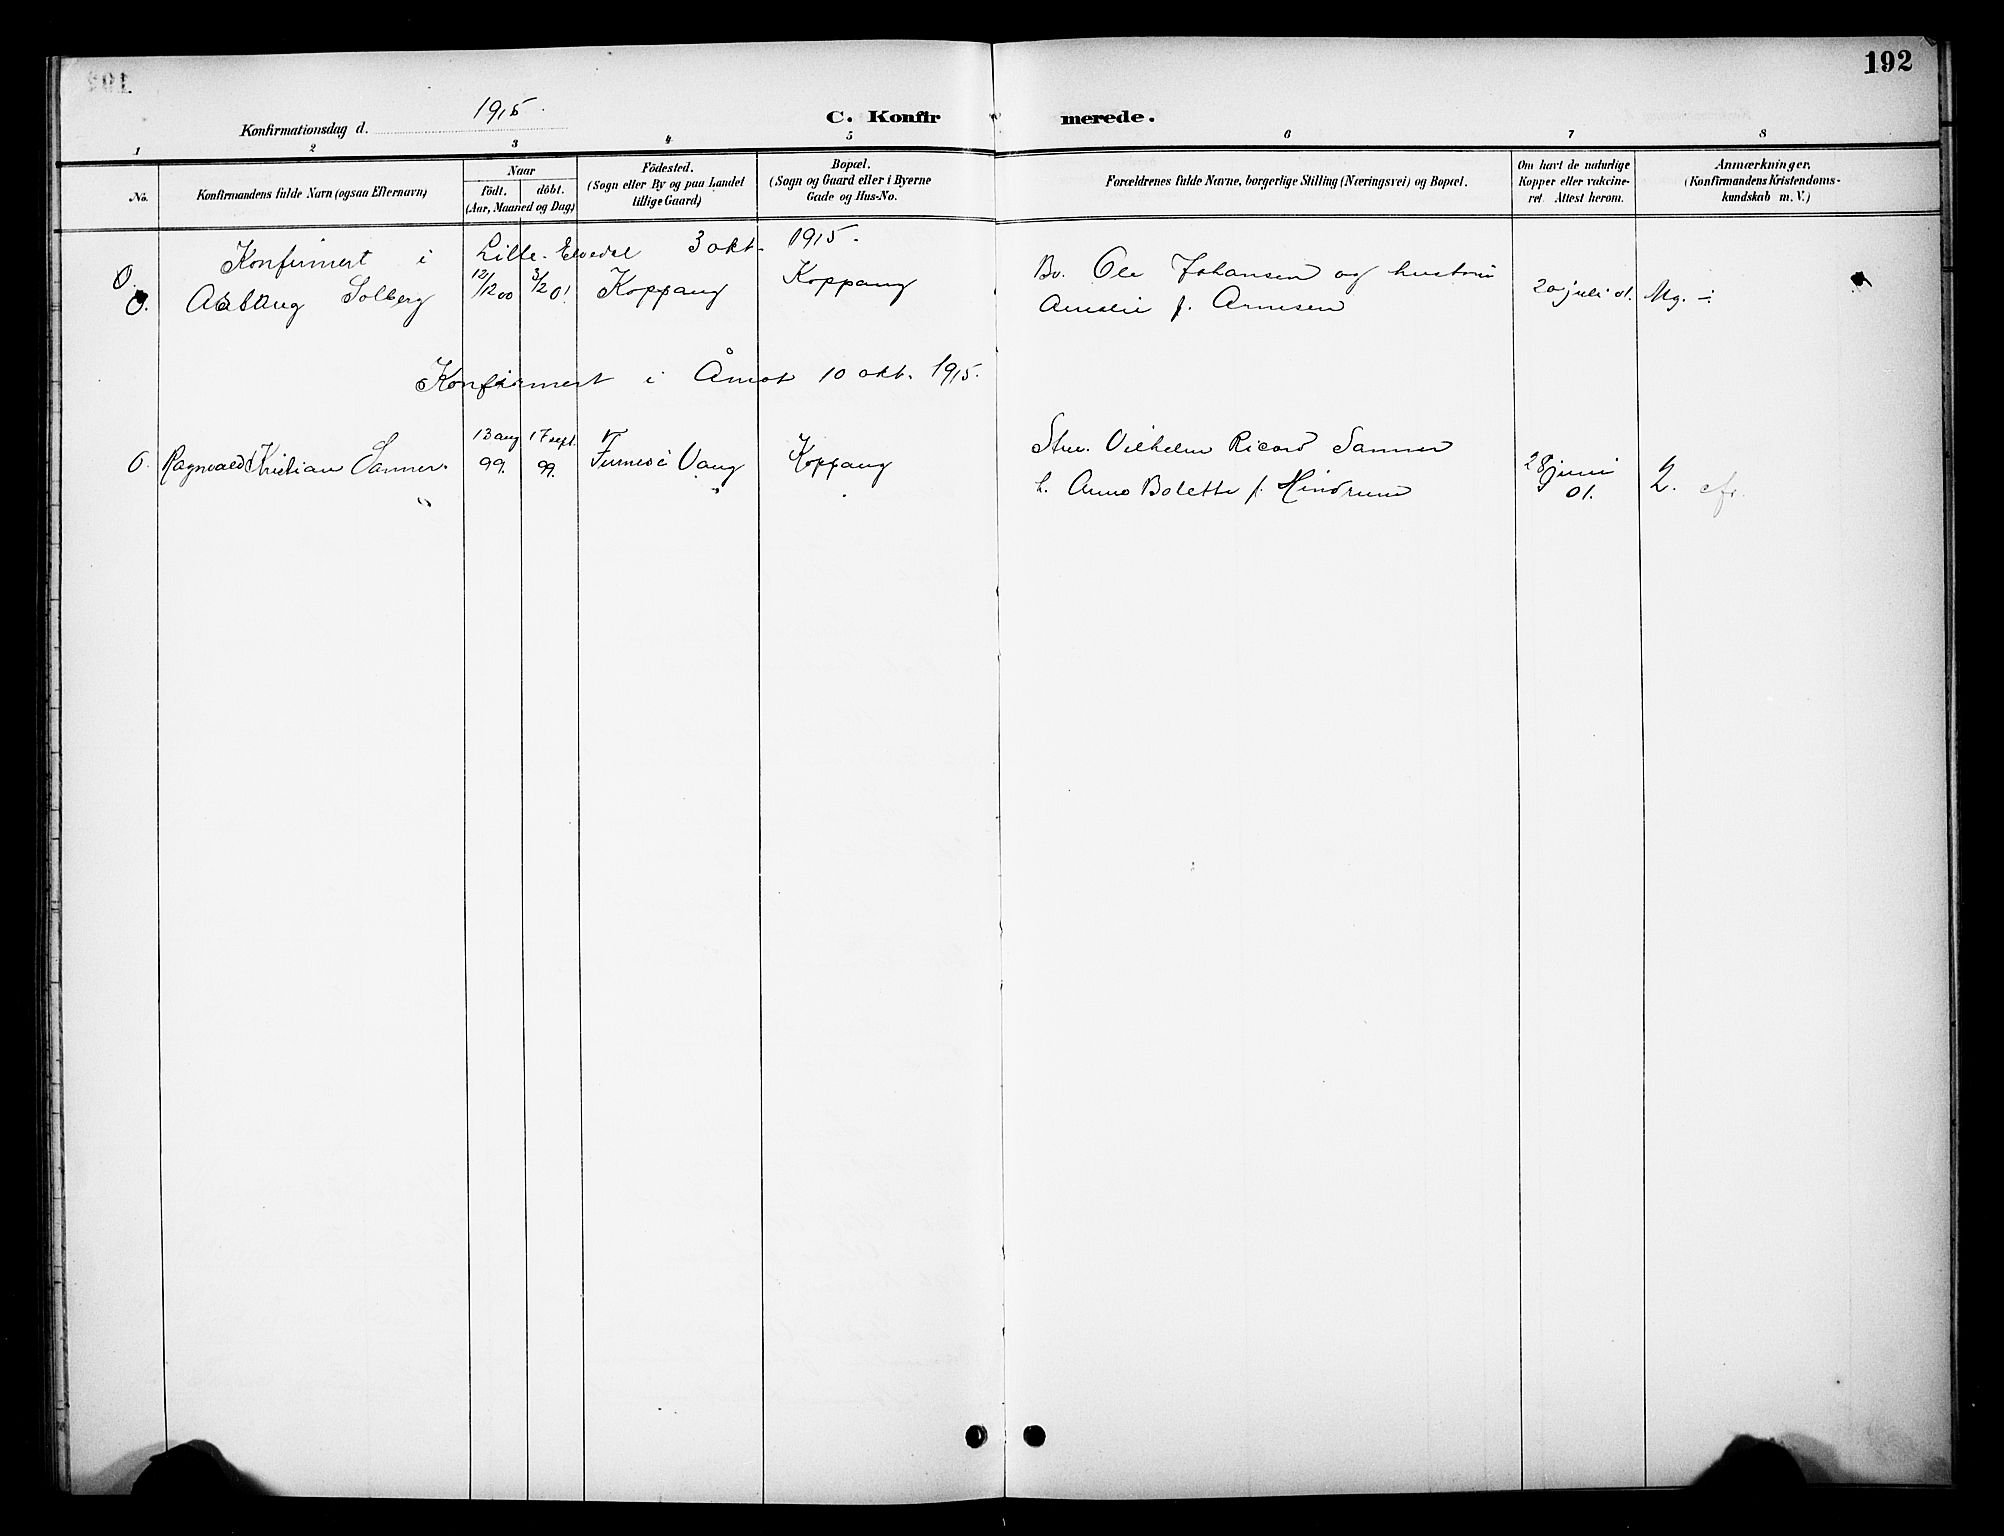 192
Konfirmationsdag d. 1915.
C. Konfirmerede.
1 2 3 4 5 6 7 8
No.
Konfirmandens fulde Navn (ogsaa Efternavn)
Naar
födt. döbt.
(Aar, Maaned og Dag)
Födested.
(Sogn eller By og paa Landet
tillige Gaard)
Bopæl.
(Sogn og Gaard eller i Byerne
Gade og Hus-No.
Forældrenes fulde Navne, borgerlige Stilling (Næringsvei) og Bopæl.
Om havt de naturlige
Kopper eller vakcine-
ret. Attest herom.
Anmærkninger,
(Konfirmandens Kristendoms-
kundskab m. V.)
Konfirmert i Lille-Elvedal 3 okt. 1915.
O.
O. Aslaug Solberg 12/12 00 3/2 01 Koppang Koppang Bv. Ole Johansen og hustru
Amalie f. Arnesen 20 juli 01. Mg. -
Konfirmert i Åmot 10 okt. 1915.
O. Ragnvald Kristian Sanner. 13 aug 99. 17 sept. 99. Furnes i Vang Koppang Vilhelm Ricard Sanner
h. Anna Bolette f. Hindrum 28 juni 01. 2. cfr.